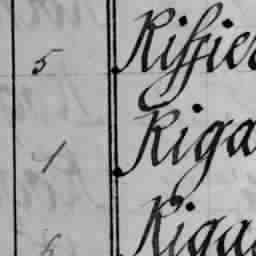 5 Riffier
1 Riga
6 Riga